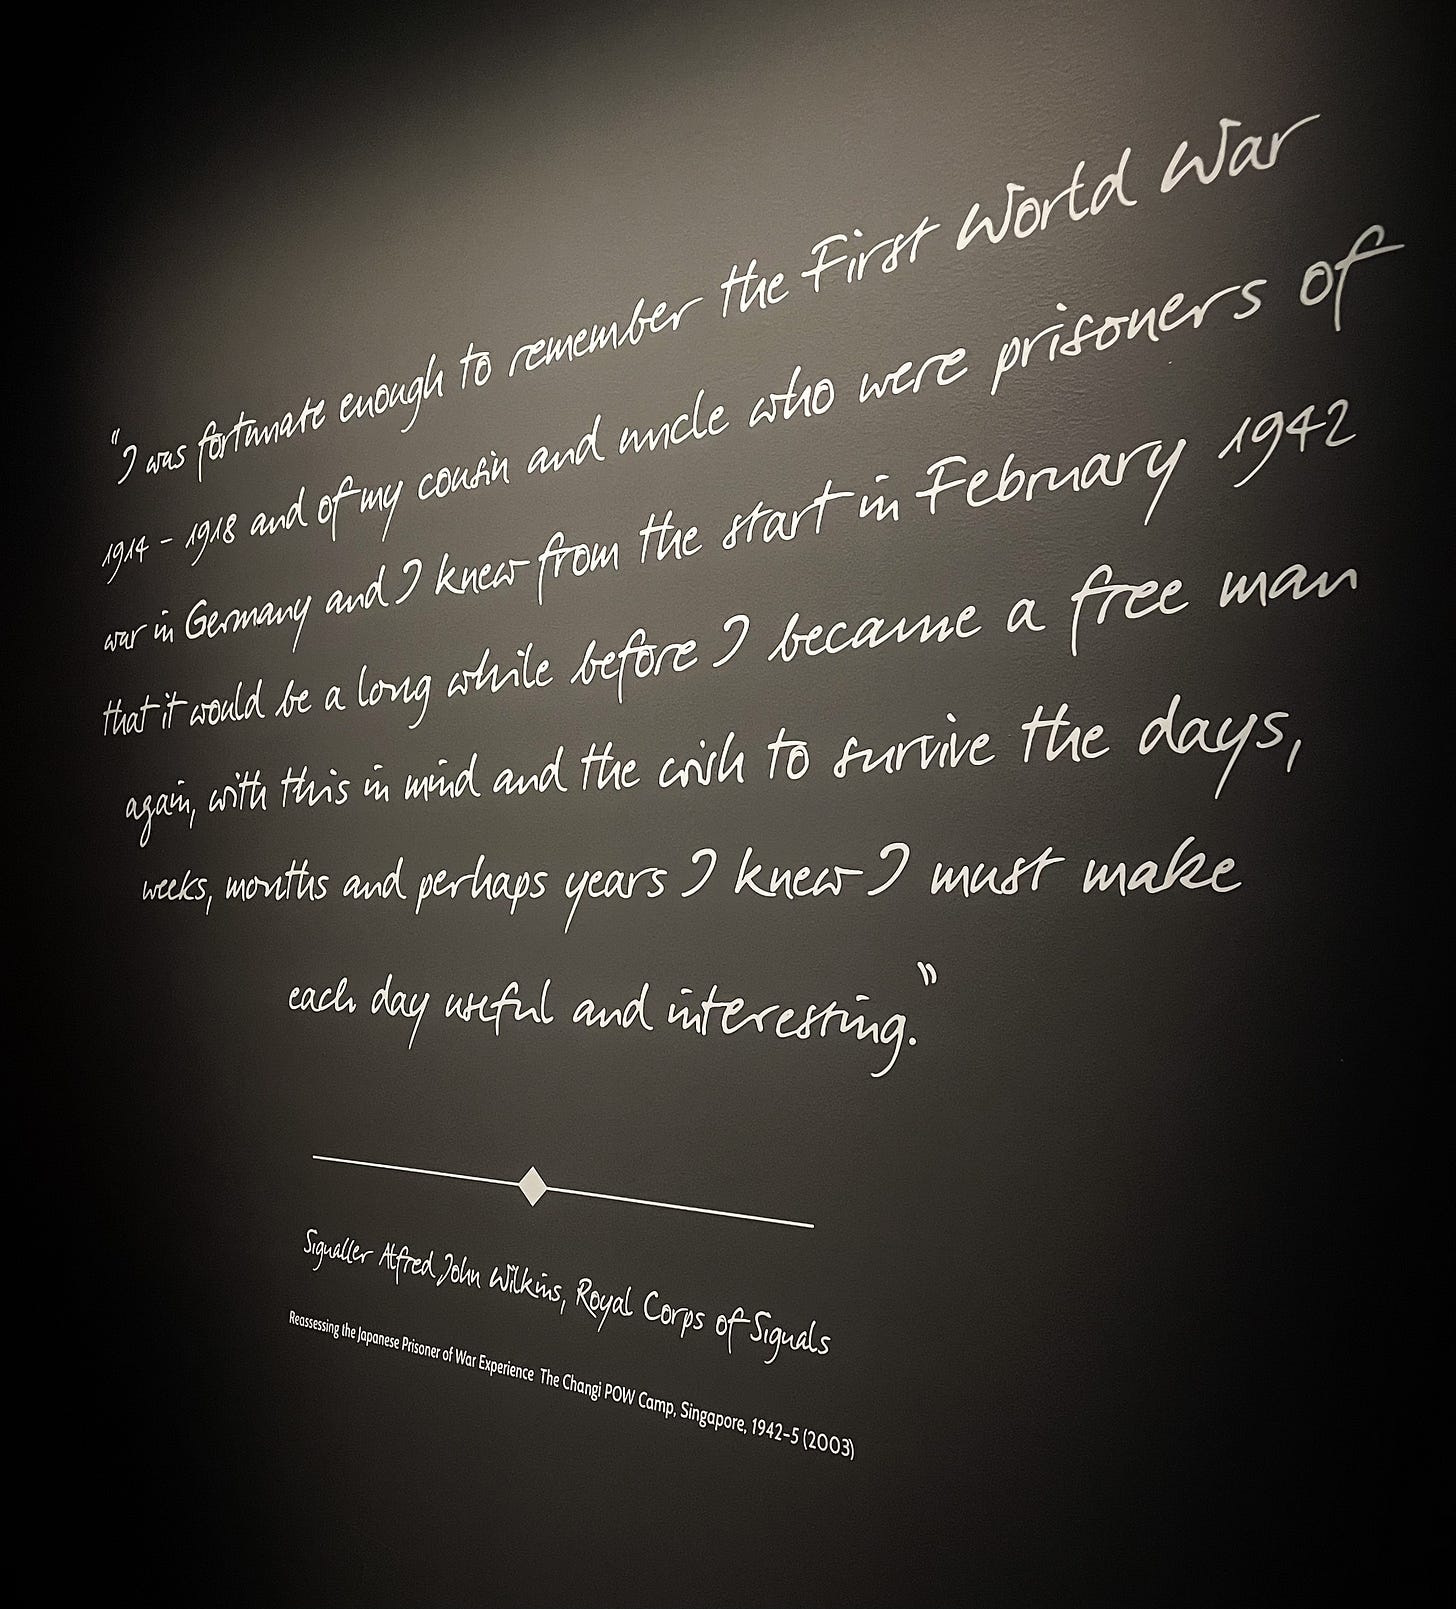 "I was fortunate enough to remember the First World War
1914 - 1918 and of my cousin and uncle who were prisoners of
war in Germany and I knew from the start in February 1942
that it would be a long while before I became a free man
again, with this in mind and the wish to survive the days,
weeks, months and perhaps years I knew I must make
each day useful and interesting."
Signaller Alfred John Wilkins, Royal Corps of Signals
Reassessing the Japanese Prisoner of War Experience The Changi POW Camp, Singapore, 1942-5 (2003)